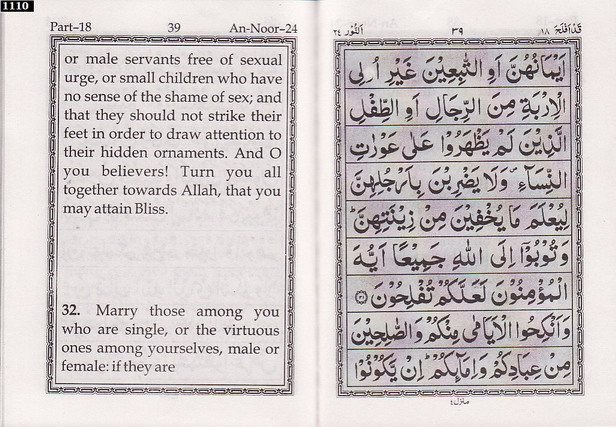 1110
Part–18 39 An-Noor–24
or male servants free of sexual
urge, or small children who have
no sense of the shame of sex; and
that they should not strike their
feet in order to draw attention to
their hidden ornaments. And O
you believers! Turn you all
together towards Allah, that you
may attain Bliss.
32. Marry those among you
who are single, or the virtuous
ones among yourselves, male or
female: if they are
قَدْ اَفْلَحَ ١٨ ٣٩ اَلنُّوْر ٢٤
اَيْمَانُهُنَّ اَوِ التّٰبِعِيْنَ غَيْرِ اُولِى
الْاِرْبَةِ مِنَ الرِّجَالِ اَوِ الطِّفْلِ
الَّذِيْنَ لَمْ يَظْهَرُوْا عَلٰى عَوْرٰتِ
النِّسَآءِ وَلَا يَضْرِبْنَ بِاَرْجُلِهِنَّ
لِيُعْلَمَ مَا يُخْفِيْنَ مِنْ زِيْنَتِهِنَّ ؕ
وَتُوْبُوْٓا اِلَى اللّٰهِ جَمِيْعًا اَيُّهَ
الْمُؤْمِنُوْنَ لَعَلَّكُمْ تُفْلِحُوْنَ ۝٣١
وَاَنْكِحُوا الْاَيَامٰى مِنْكُمْ وَالصّٰلِحِيْنَ
مِنْ عِبَادِكُمْ وَاِمَآئِكُمْ ؕ اِنْ يَّكُوْنُوْا
منزل ٤